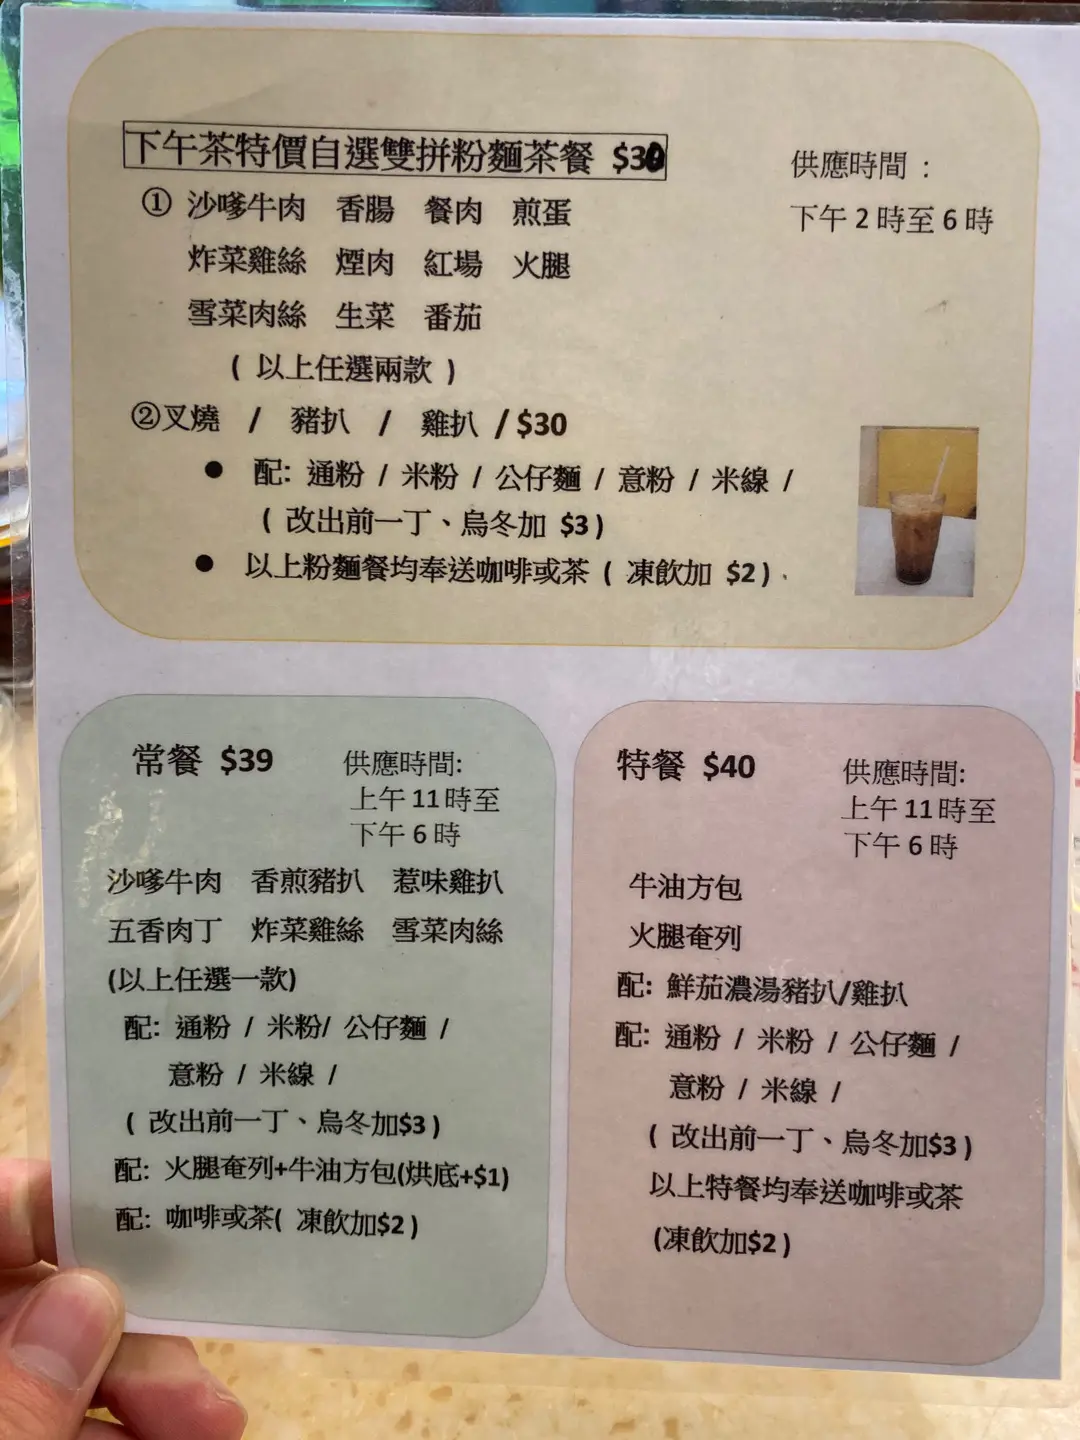 下午茶特價自選雙拼粉麵茶餐 $30
供應時間：
下午 2 時至 6 時
① 沙嗲牛肉 香腸 餐肉 煎蛋
炸菜雞絲 煙肉 紅場 火腿
雪菜肉絲 生菜 番茄
( 以上任選兩款 )
②叉燒 / 豬扒 / 雞扒 / $30
● 配: 通粉 / 米粉 / 公仔麵 / 意粉 / 米線 /
( 改出前一丁、烏冬加 $3 )
● 以上粉麵餐均奉送咖啡或茶 ( 凍飲加 $2 ) .
常餐 $39
供應時間:
上午 11 時至
下午 6 時
沙嗲牛肉 香煎豬扒 惹味雞扒
五香肉丁 炸菜雞絲 雪菜肉絲
(以上任選一款)
配: 通粉 / 米粉/ 公仔麵 /
意粉 / 米線 /
( 改出前一丁、烏冬加$3 )
配: 火腿奄列+牛油方包(烘底+$1)
配: 咖啡或茶( 凍飲加$2 )
特餐 $40
供應時間:
上午 11 時至
下午 6 時
牛油方包
火腿奄列
配: 鮮茄濃湯豬扒/雞扒
配: 通粉 / 米粉 / 公仔麵 /
意粉 / 米線 /
( 改出前一丁、烏冬加$3 )
以上特餐均奉送咖啡或茶
(凍飲加$2 )